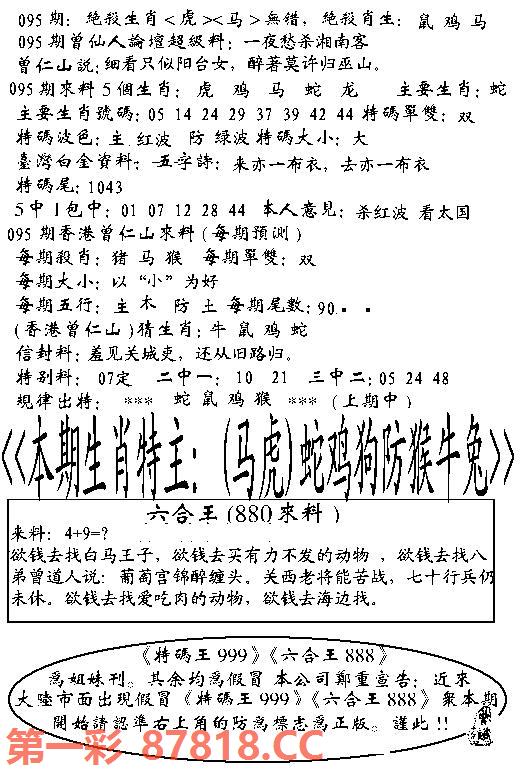 095期:绝殺生肖<虎><马>無錯,绝殺肖生:鼠 鸡 马
095期曾仙人論壇超級料:一夜愁杀湘南客
曾仁山説:细看只似阳台女,醉著莫许归巫山。
095期來料5個生肖:虎 鸡 马 蛇 龙 主要生肖:蛇
主要生肖號碼:05 14 24 29 37 39 42 44 特碼單雙:双
特碼波色:主 红波 防 绿波 特碼大小:大
臺灣白金資料:五字詩:来亦一布衣,去亦一布衣
特碼尾:1043
5中1包中:01 07 12 28 44 本人意見:杀红波 看太国
095期香港曾仁山來料(每期預測)
每期殺肖:猪 马 猴 每期單雙:双
每期大小:以“小”为好
每期五行:主 木 防 土 每期尾數:90..
(香港曾仁山)猜生肖:牛 鼠 鸡 蛇
信封料:羞见关城吏,还从旧路归。
特别料:07定 二中一:10 21 三中二:05 24 48
規律出特:*** 蛇 鼠 鸡 猴 ***(上期中)
《本期生肖特主:(马虎)蛇鸡狗防猴牛兔》
六合王(880來料)
来料:4+9=?
欲钱去找白马王子,欲钱去买有力不发的动物,欲钱去找八
弟曾道人说:葡萄宫锦醉缠头。关西老将能苦战,七十行兵仍
未休。欲钱去找爱吃肉的动物,欲钱去海边找。
《特碼王999》《六合王888》
爲姐妹刊。其余均爲假冒 本公司鄭重宣告:近來
大陸市面出現假冒《特碼王999》《六合王888》衆本期
開始請認準右上角的防爲標志爲正版。謹此!!
第一彩 87818.CC